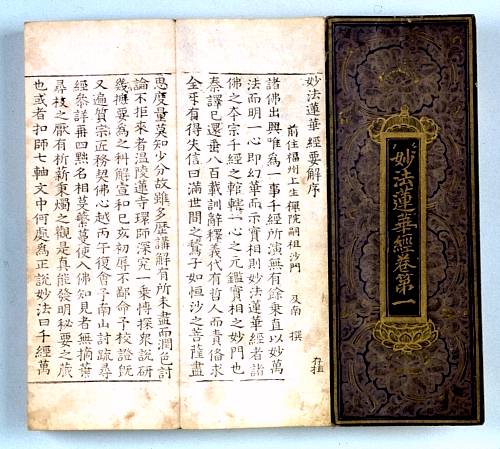 妙法蓮華經卷第一
妙法蓮華經要解序
前住福州上生禪院嗣祖沙門 及南 撰
諸佛出興唯為一事千經所演無有餘乘直以妙萬
法而明一心即幻華而示實相則妙法蓮華經者諸
佛之本宗千經之輨轄一心之元鑑實相之妙門也
秦譯已還垂八百載訓辭釋義代有哲人而責備求
全牙有得失信曰滿世間之鶖子如恒沙之菩薩盡
思度量莫知少分故雖多歷講解有所未盡而潤色討
論不拒來者溫陵蓮寺環師深究一乘愽探衆說研
幾摭要為之科解宣和己亥初辱不鄙命予校證旣
又遍質宗匠務契佛心越丙午復會予南山討疏尋
經參詳再四點名相莫縈蔓使人佛知見者無摘葉
尋枝之厭有析薪秉燭之觀是真能發明秘要之旅
也或者扣師七軸文中何處為正說妙法曰千經萬